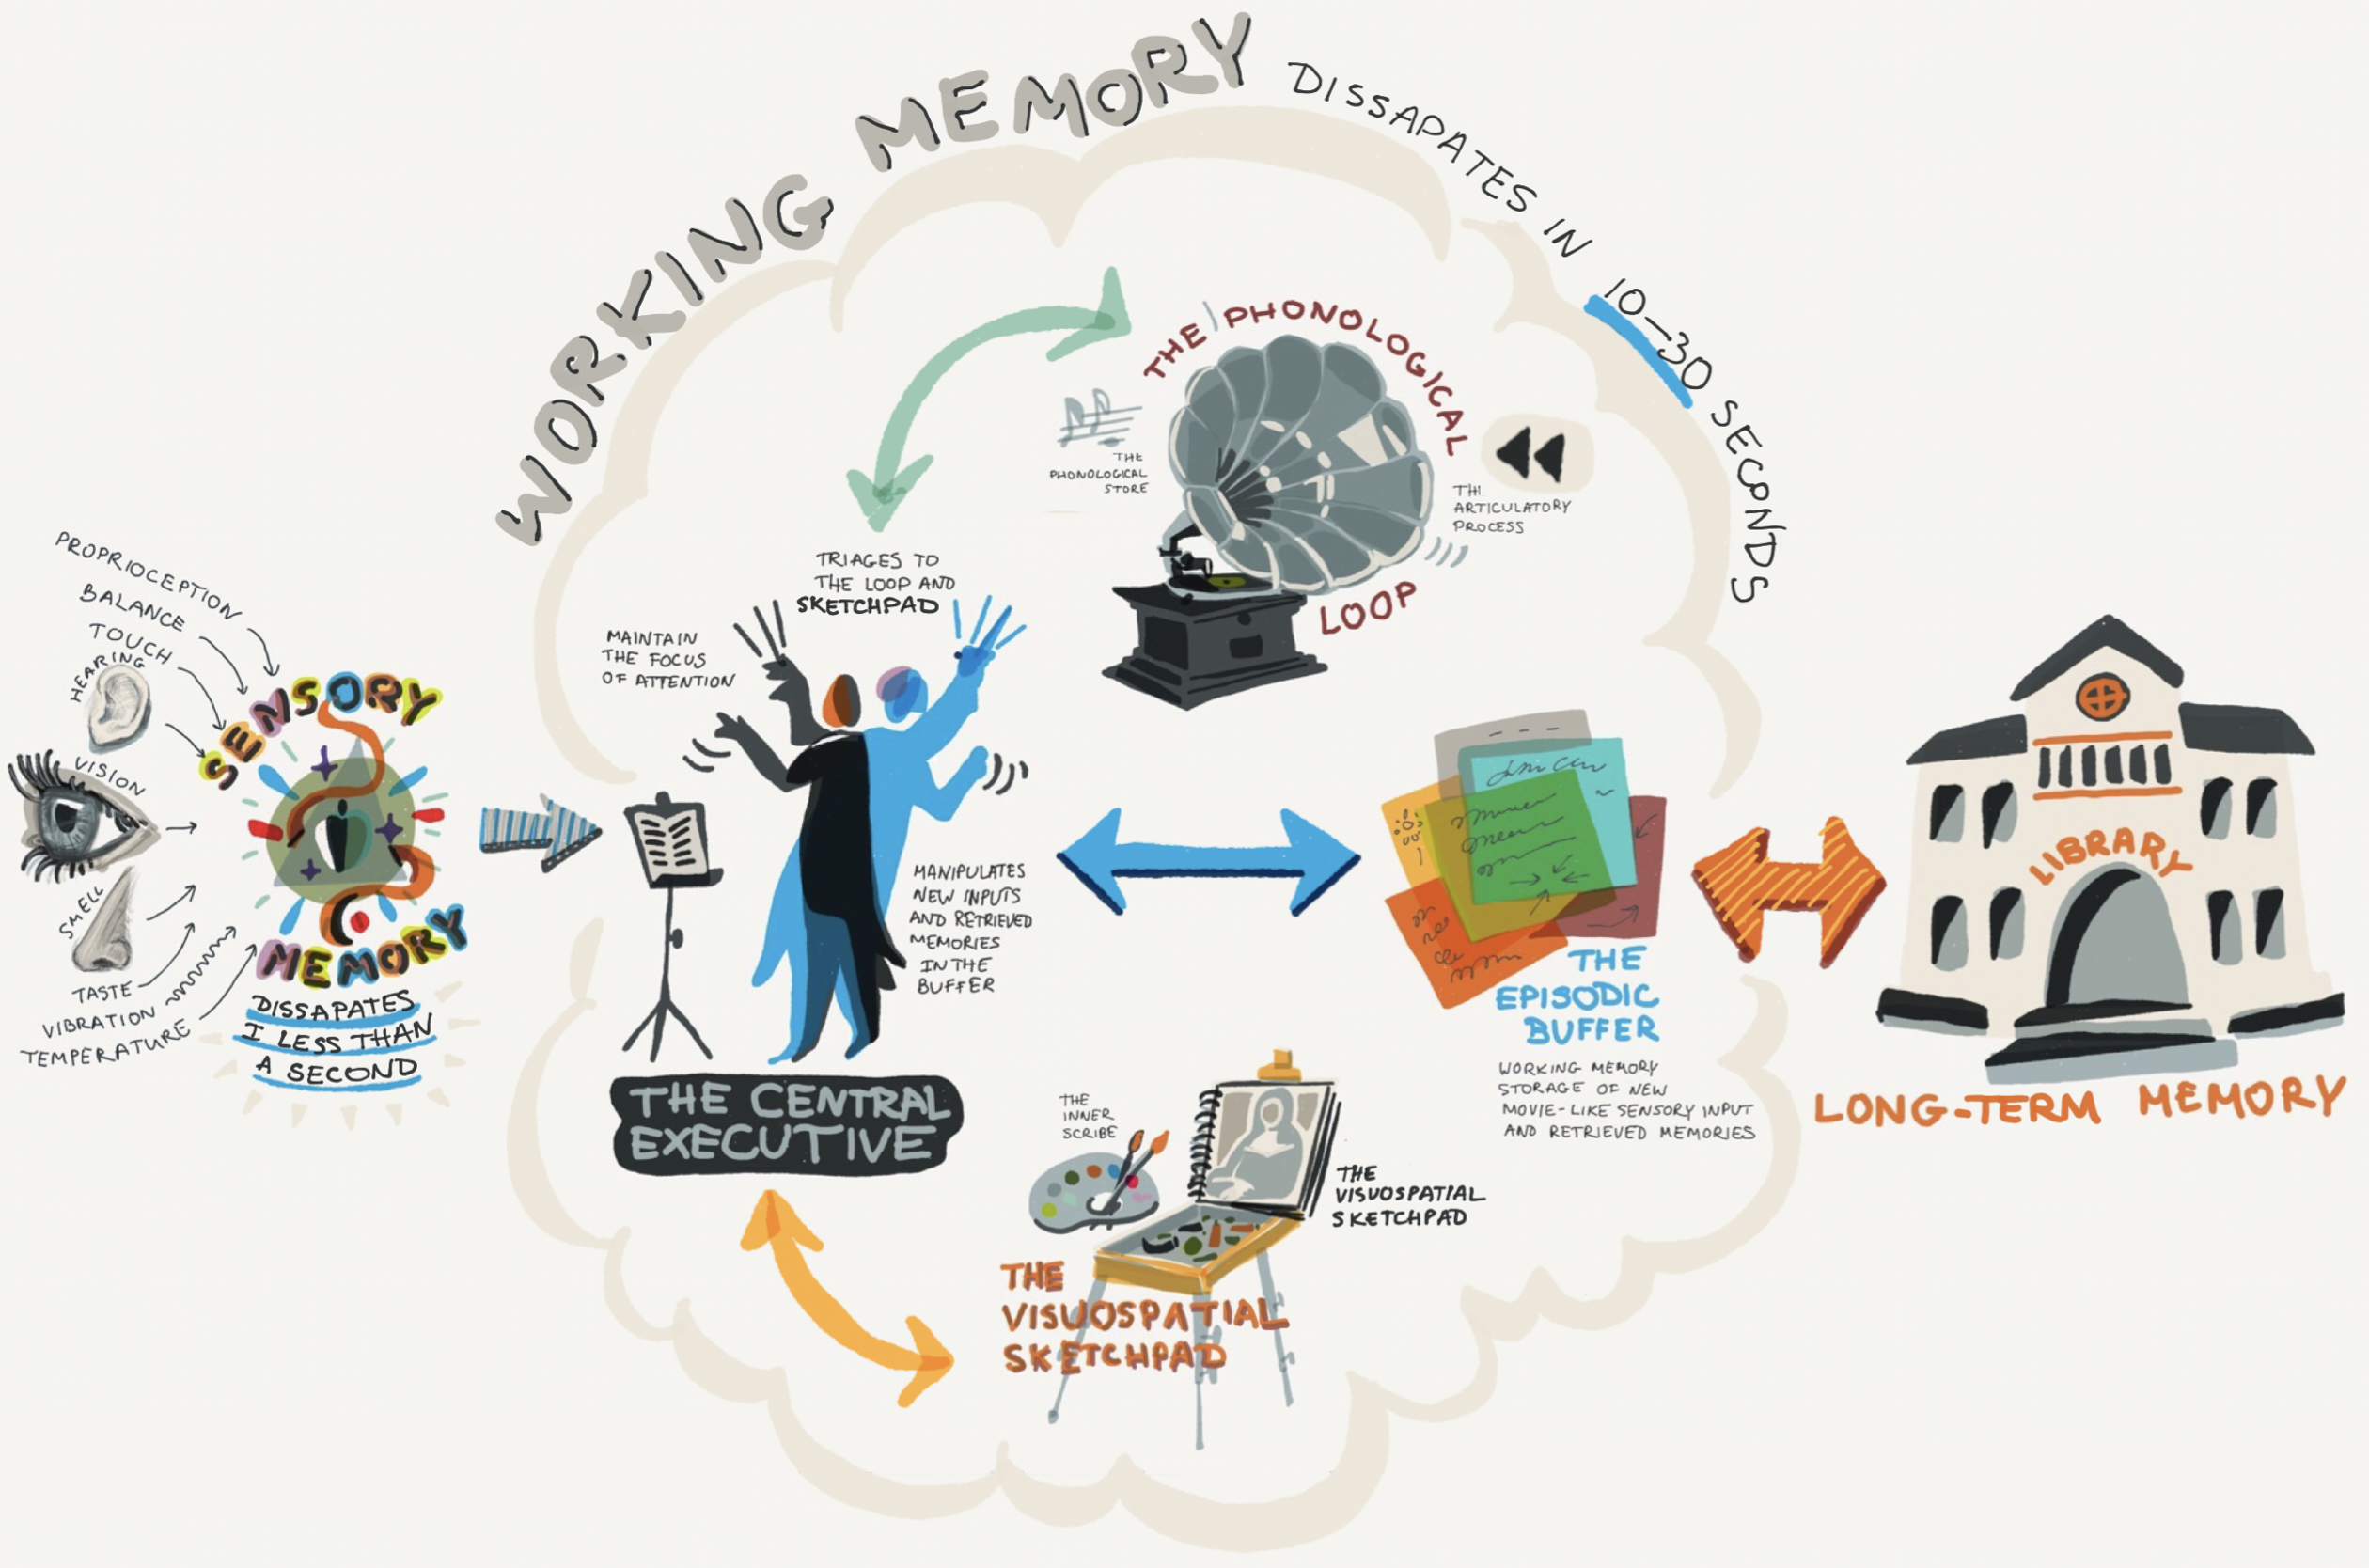 WORKING MEMORY DISSAPATES IN 10–30 SECONDS
PROPRIOCEPTION
BALANCE
TOUCH
HEARING
VISION
SMELL
TASTE
VIBRATION
TEMPERATURE
SENSORY
MEMORY
DISSAPATES
I LESS THAN
A SECOND
MAINTAIN
THE FOCUS
OF ATTENTION
TRIAGES TO
THE LOOP AND
SKETCHPAD
MANIPULATES
NEW INPUTS
AND RETRIEVED
MEMORIES
IN THE
BUFFER
THE CENTRAL
EXECUTIVE
THE PHONOLOGICAL
LOOP
THE
PHONOLOGICAL
STORE
TH
ARTICULATORY
PROCESS
THE
EPISODIC
BUFFER
WORKING MEMORY
STORAGE OF NEW
MOVIE-LIKE SENSORY INPUT
AND RETRIEVED MEMORIES
THE
INNER
SCRIBE
THE
VISUOSPATIAL
SKETCHPAD
THE
VISUOSPATIAL
SKETCHPAD
LIBRARY
LONG-TERM MEMORY